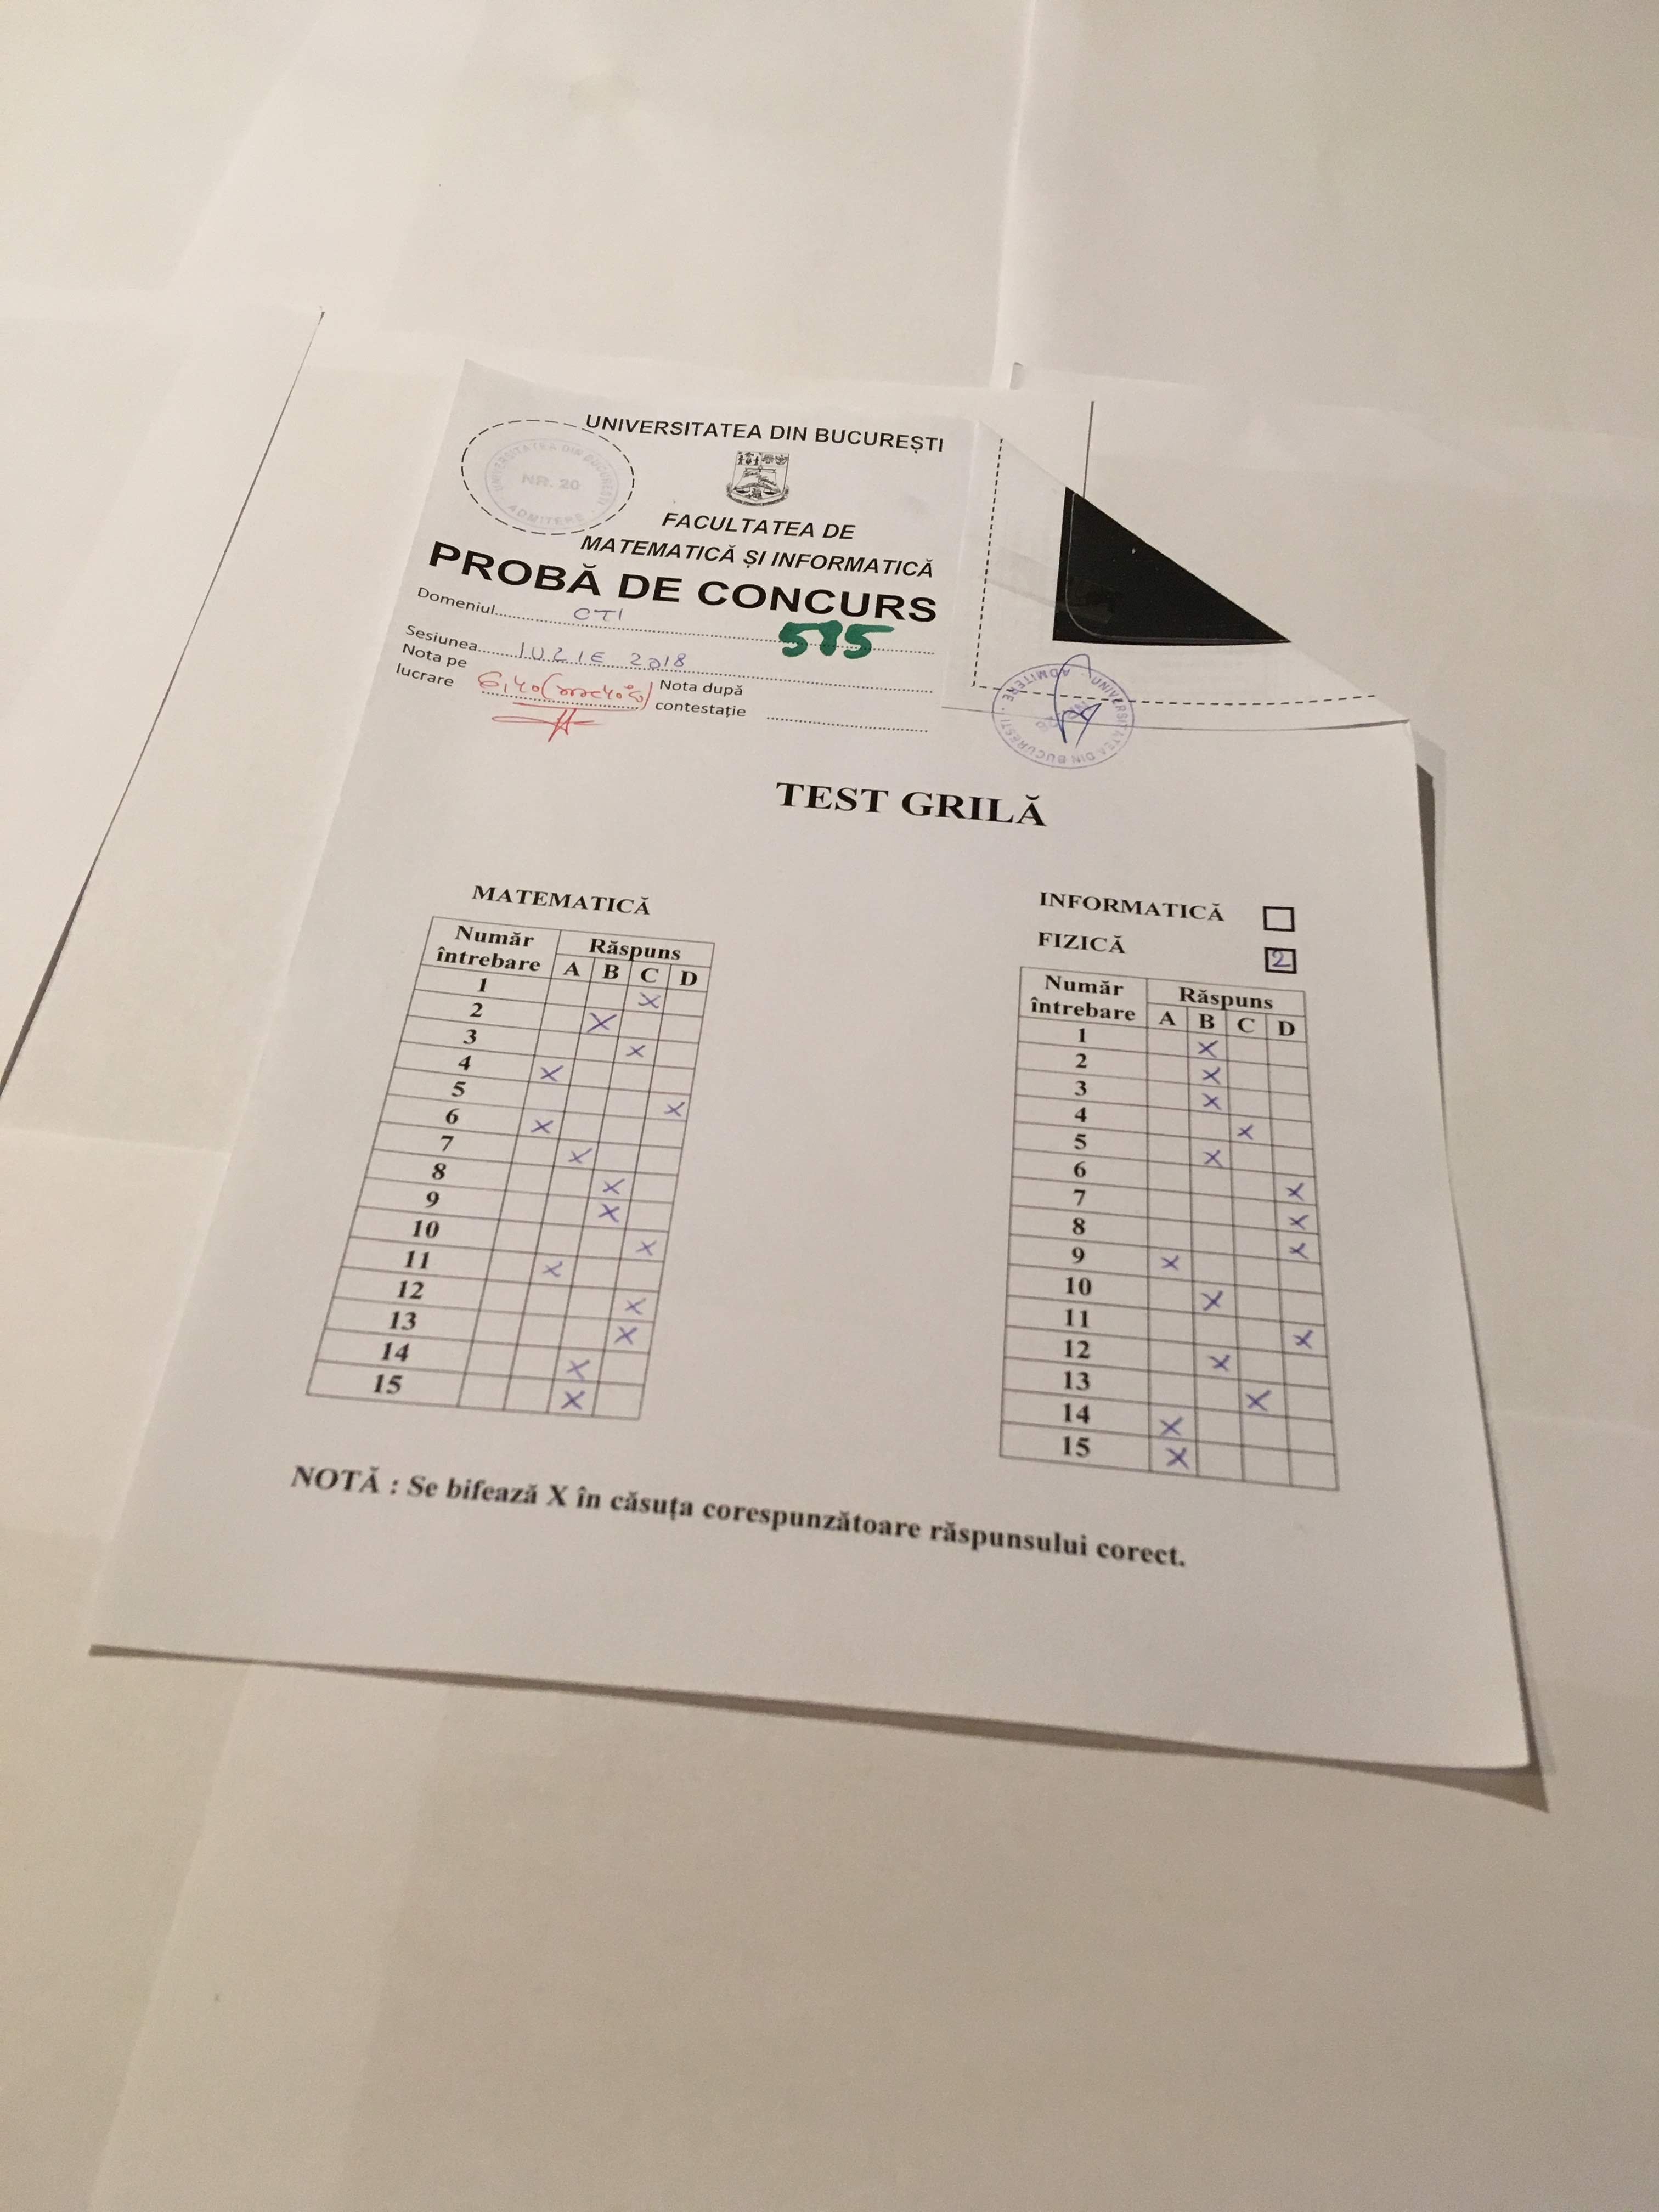 UNIVERSITATEA DIN BUCUREȘTI
UNIVERSITATEA DIN BUCUREȘTI
NR. 20
ADMITERE
FACULTATEA DE
MATEMATICĂ ȘI INFORMATICĂ
PROBĂ DE CONCURS
Domeniul CTI
515
Sesiunea IULIE 2018
Nota pe
lucrare 6,40
Nota după
contestație
UNIVERSITATEA DIN BUCUREȘTI ADMITERE
TEST GRILĂ
MATEMATICĂ
Număr
întrebare
Răspuns
A B C D
1 X
2 X
3 X
4 X
5 X
6 X
7 X
8 X
9 X
10 X
11 X
12 X
13 X
14 X
15 X
INFORMATICĂ
FIZICĂ 2
Număr
întrebare
Răspuns
A B C D
1 X
2 X
3 X
4 X
5 X
6 X
7 X
8 X
9 X
10 X
11 X
12 X
13 X
14 X
15 X
NOTĂ : Se bifează X în căsuța corespunzătoare răspunsului corect.